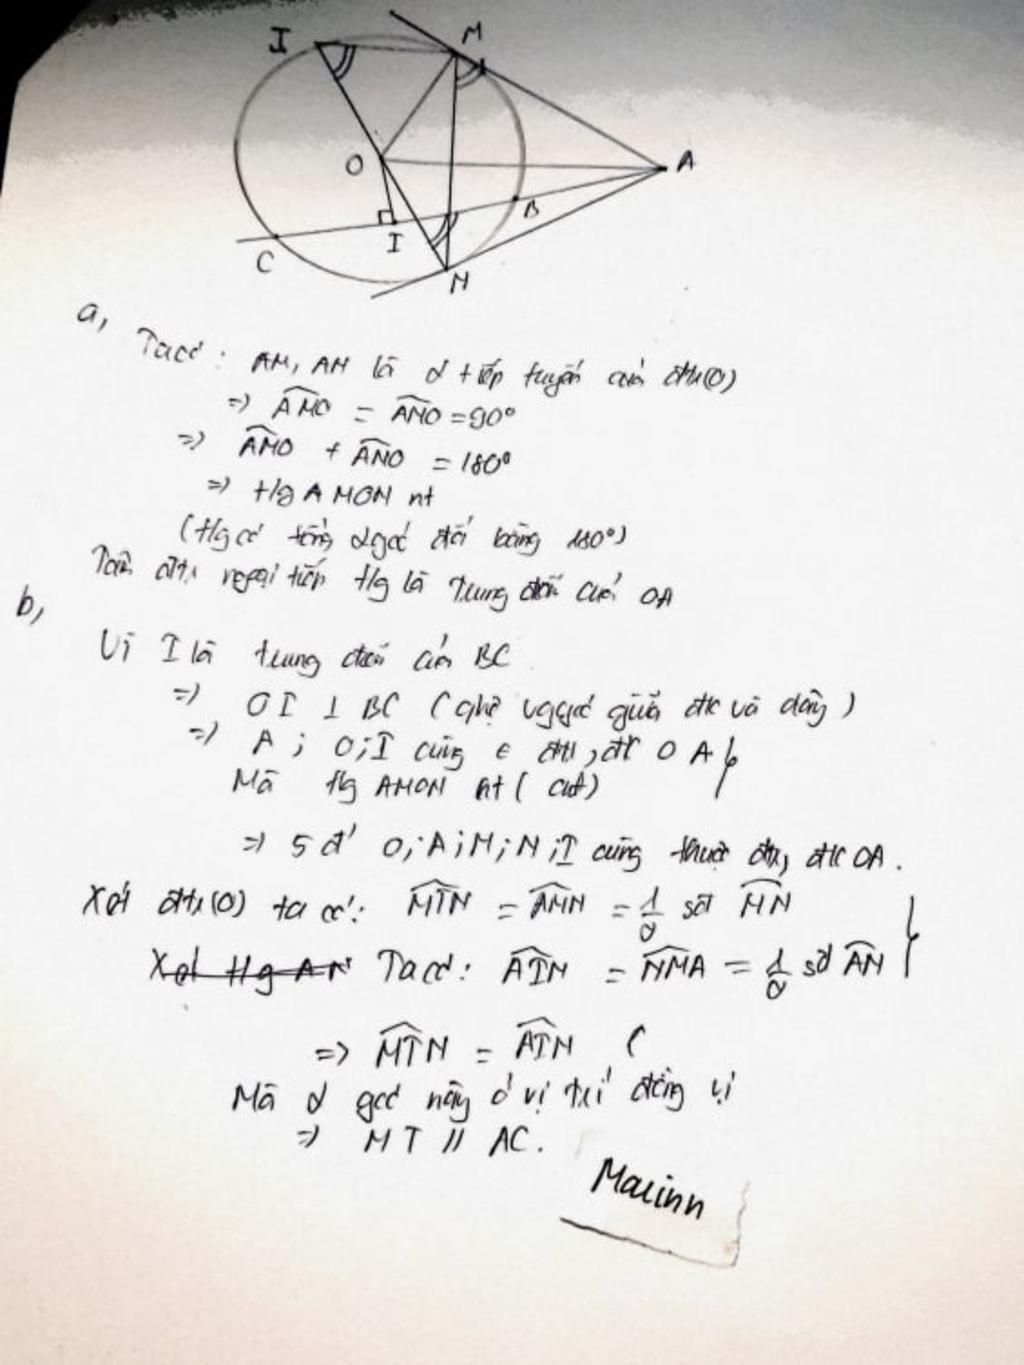 I
M
O
A
B
I
C
N
a,
Ta có: AM, AN là 2 tiếp tuyến của đtr(O)
=> AMO = ANO = 90°
=> AMO + ANO = 180°
=> tfg AMON nt
(tfg có tổng 2 góc đối bằng 180°)
Tâm đtr ngoại tiếp tfg là trung điểm của OA
b,
Vì I là trung điểm của BC
=> OI ⊥ BC (qhệ vggóc giữa đk và dây)
=> A; O; I cùng ∈ đtr, đk OA }
Mà tfg AMON nt (cmt)
=> 5 đ' O; A; M; N; I cùng thuộc đtr, đk OA.
Xét đtr(O) ta có: MTN = AMN = 1/2 sđ MN
Ta có: AIN = NMA = 1/2 sđ AN }
=> MTN = AIN (
Mà 2 góc này ở vị trí đồng vị
=> MT // AC.
Maiinn